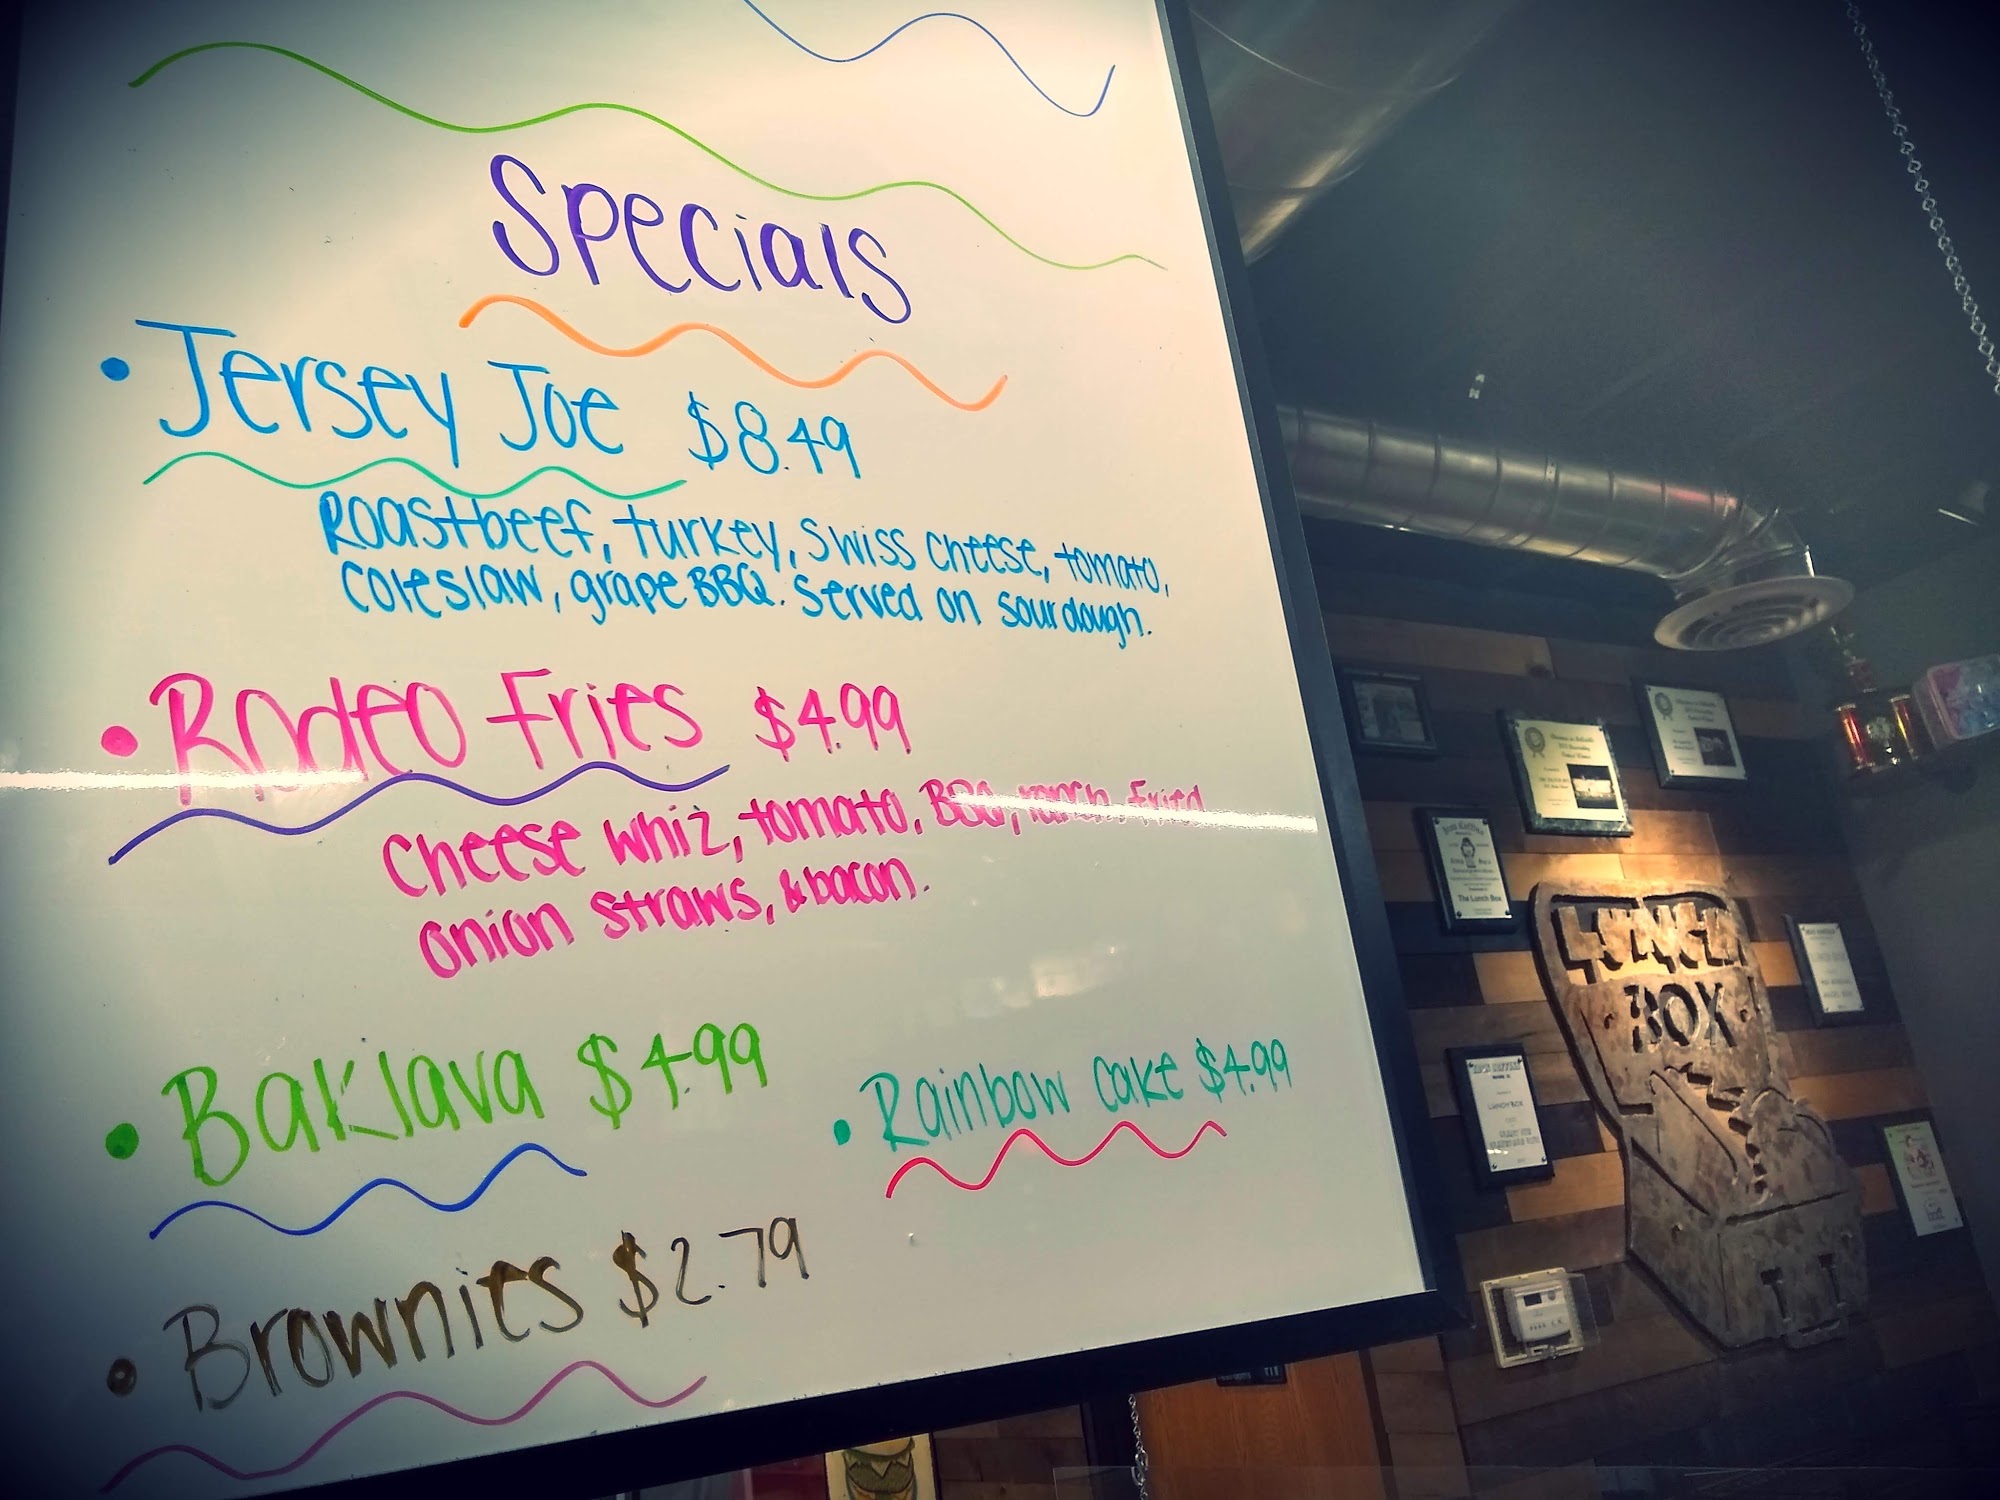 Specials
• Jersey Joe $8.49
Roastbeef, turkey, swiss cheese, tomato,
coleslaw, grape BBQ. Served on sourdough.
• Rodeo Fries $4.99
Cheese Whiz, tomato, BBQ, ranch, fried
onion straws, & bacon.
• Baklava $4.99
• Rainbow Cake $4.99
• Brownies $2.79
LUNCH
BOX
The Lunch Box
LUNCH BOX